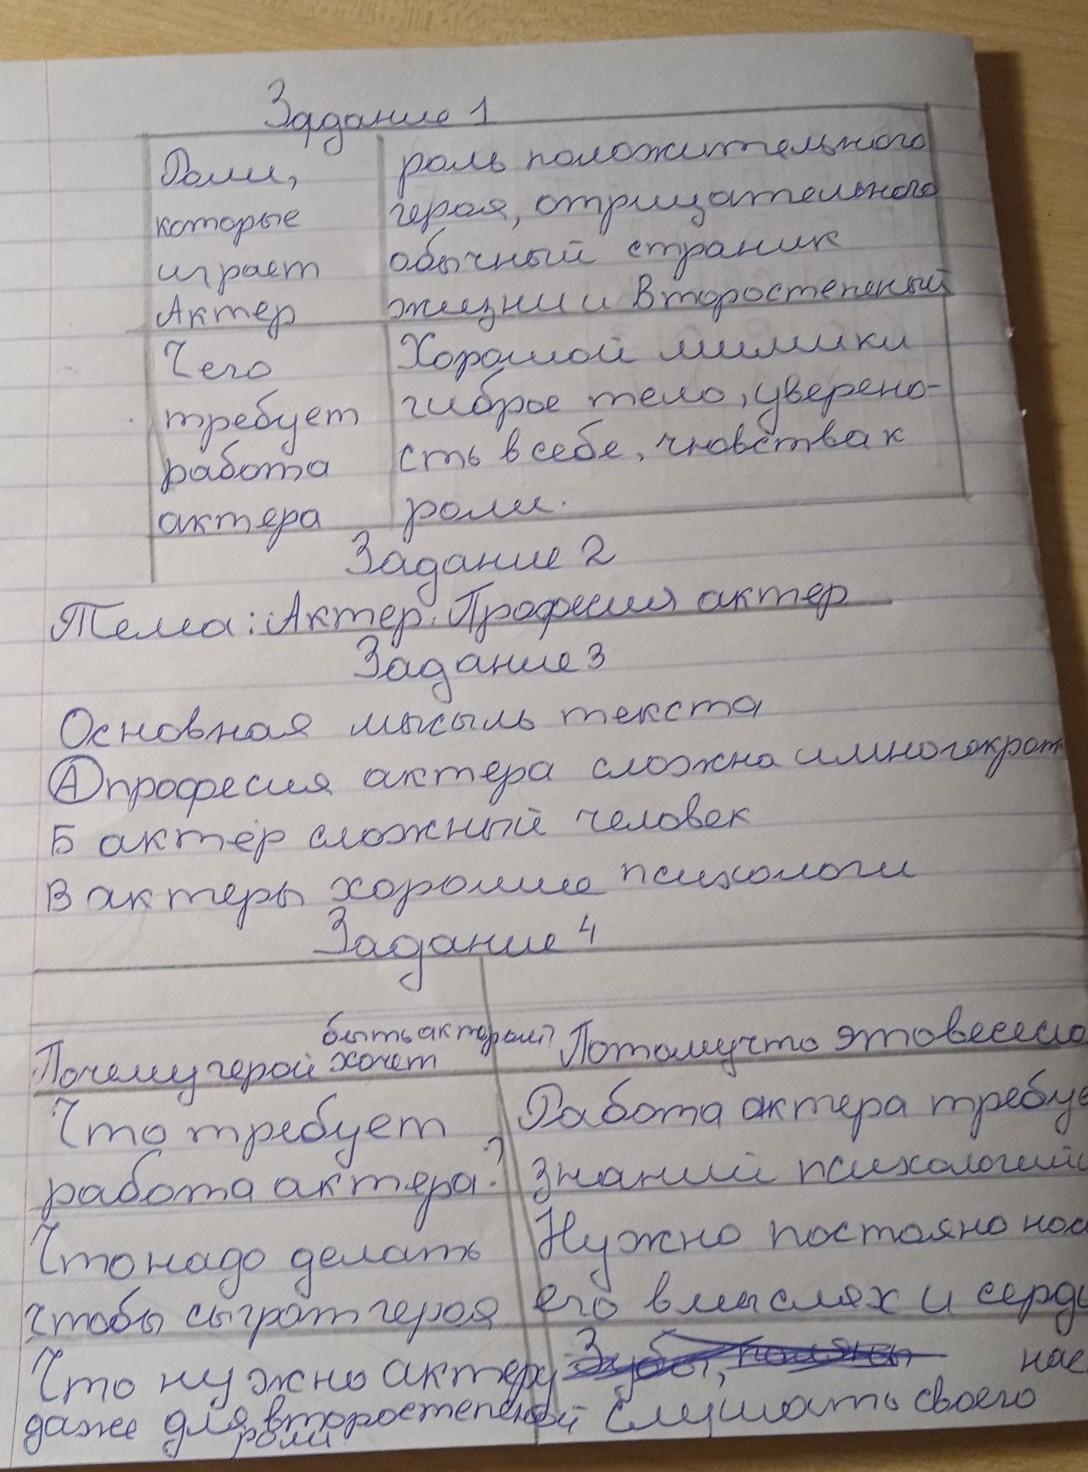 Задание 1
Роли, роль положительного
которые героя, отрицательного
играет обычный страник
Актер жизни и Второстепеный
Чего Хорошой мимики
требует гиброе тело, уверено-
работа сть в себе, чювства к
актера роли.
Задание 2
Тема: Актер. Професия актер
Задание 3
Основная мысыль текста
А професия актера сложна и многократ
Б актёр сложный человек
В актеры хорошие психологи
Задание 4
быть актером?
Почему герой хочет Потомучто это весело
Что требует Работа актера требуе
работа актера? знаний психологий
Что надо делать Нужно постояно нос
чтобы сыграт героя его в мыслях и сердц
Что нужно актеру нас
даже для второстепеной слушать своего
роли